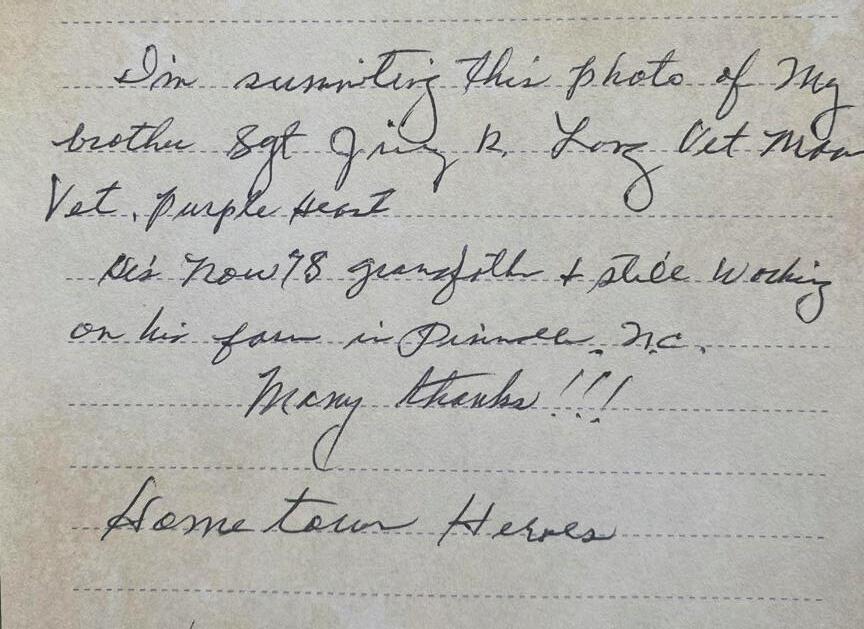 I'm summiting this photo of My
brother Sgt R. Long Vet
Vet, Purple Heart
He's Now 78 grandfather & still working
on his farm in Pinnacle, N.C.
Many thanks!!!
Hometown Heroes